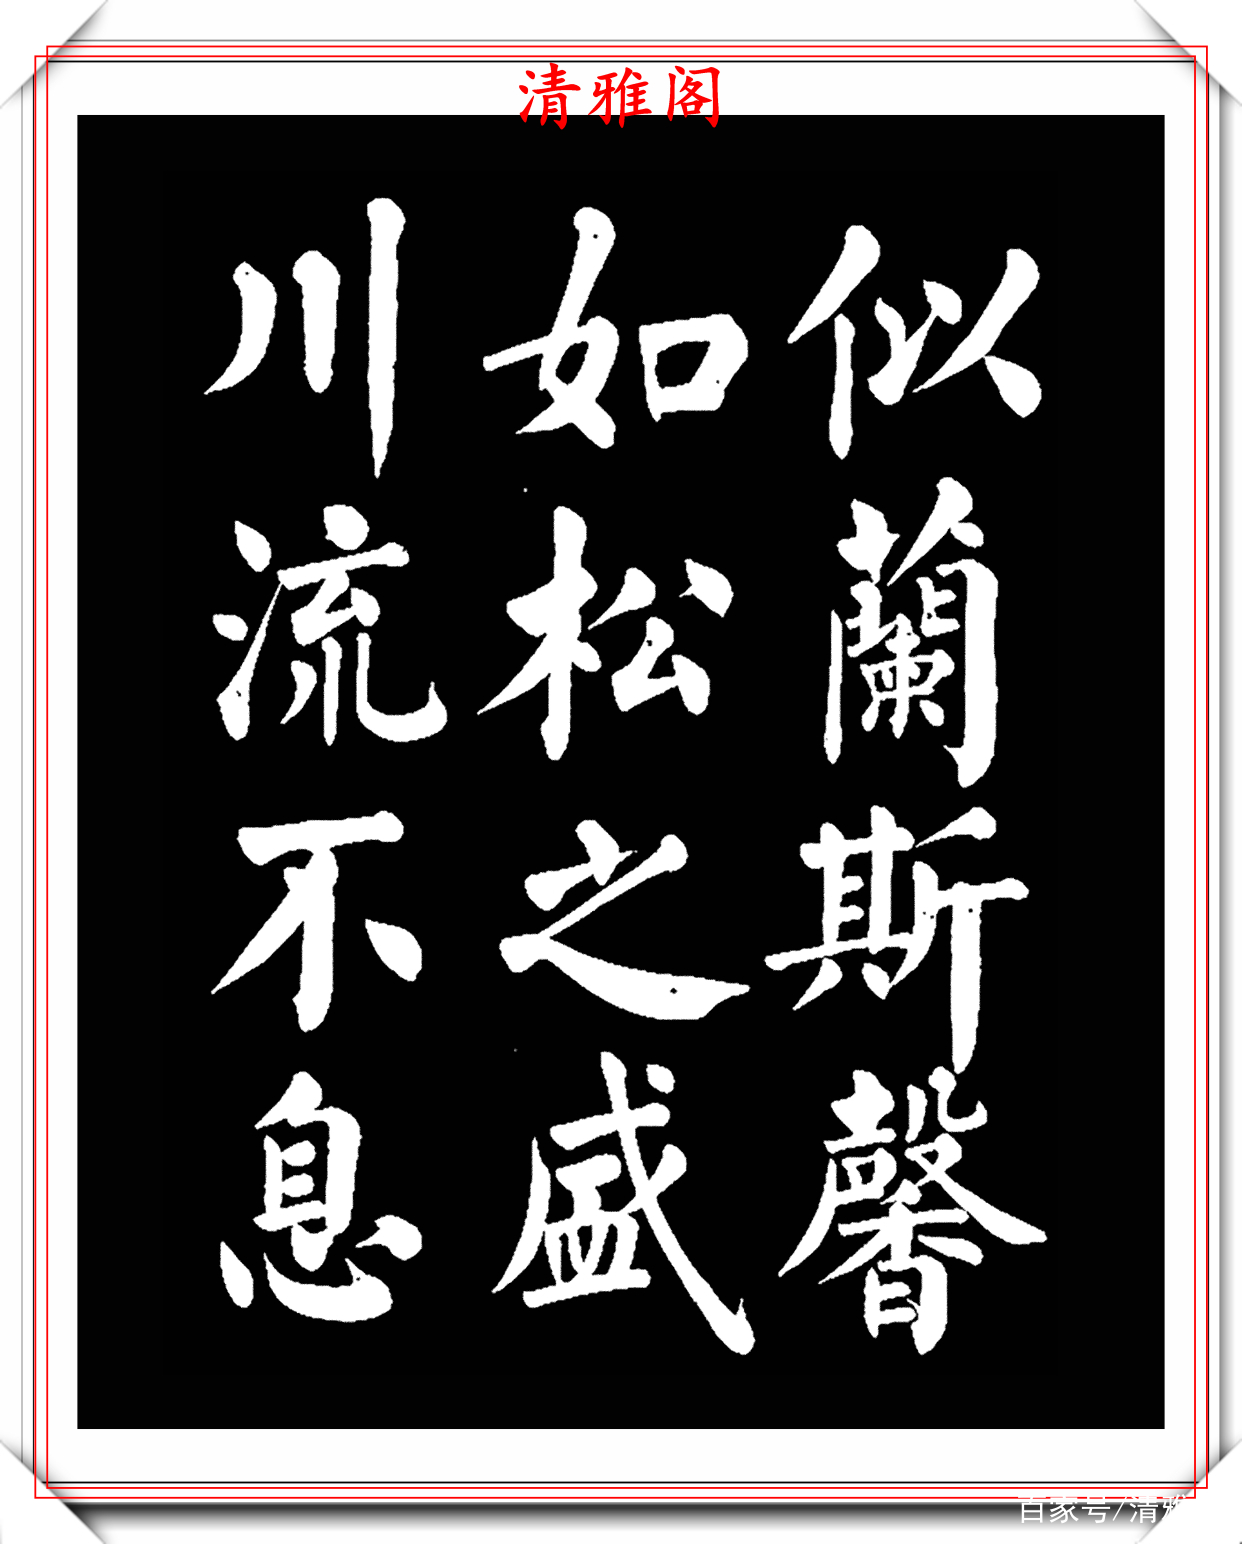 清雅阁
似蘭斯馨
如松之盛
川流不息
百家号/清雅